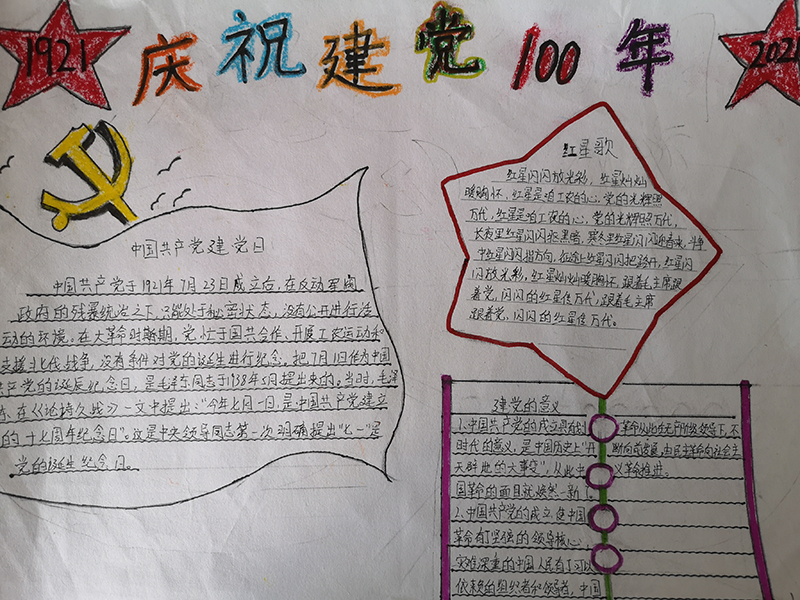 1921
庆祝建党100年
202
中国共产党建党日
中国共产党于1921年7月23日成立后,在反动军阀
政府的残暴统治之下,只能处于秘密状态,没有公开进行活
动的环境。在大革命时期,党忙于国共合作、开展工农运动和
支援北伐战争,没有条件对党的诞生进行纪念。把7月1日作为中国
共产党的诞辰纪念日,是毛泽东同志于1938年5月提出来的。当时,毛泽
在《论持久战》一文中提出:“今年七月一日,是中国共产党建立
的十七周年纪念日”。这是中央领导同志第一次明确提出“七一”是
党的诞生纪念日。
红星歌
红星闪闪放光彩,红星灿灿
暖胸怀,红星是咱工农的心,党的光辉照
万代,红星是咱工农的心,党的光辉照万代,
长夜里红星闪闪驱黑暗,寒冬里红星闪闪迎春来,斗争
中红星闪闪指方向,征途上红星闪闪把路开,红星闪
闪放光彩,红星灿灿暖胸怀,跟着毛主席跟
着党,闪闪的红星传万代,跟着毛主席
跟着党,闪闪的红星传万代。
建党的意义
1、中国共产党的成立具有划
时代的意义,是中国历史上“开
天辟地的大事变”,从此中
国革命的面目就焕然一新
2、中国共产党的成立,使中国
革命有了坚强的领导核心
灾难深重的中国人民有了可以
依赖的组织者和领导者,中国
革命从此在无产阶级领导下,不
断向前发展,由民主革命向社会主
义革命推进。